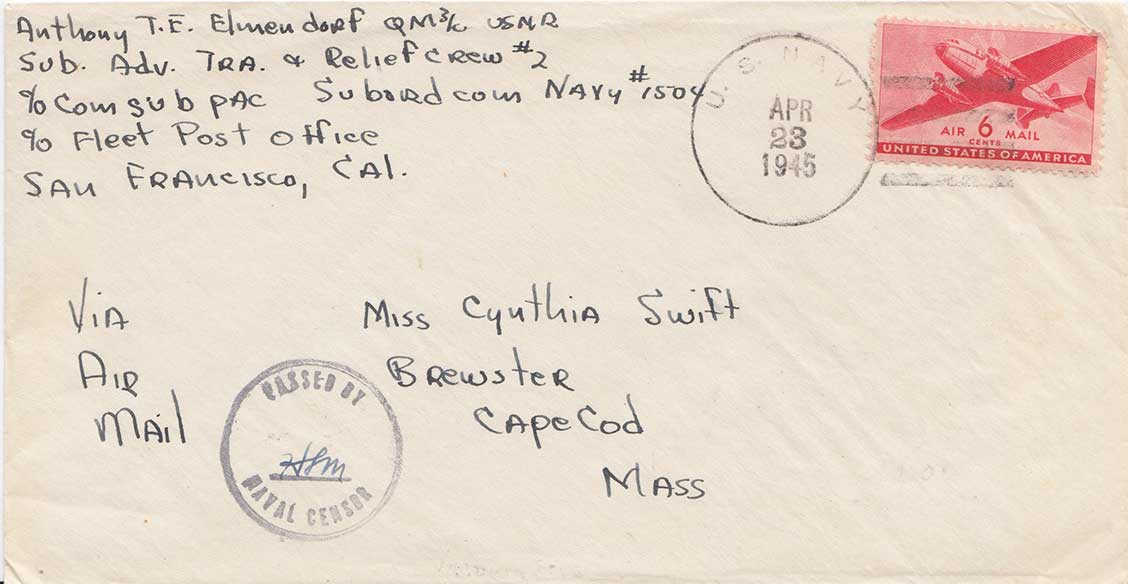 Anthony T.E. Elmendorf QM 3/c USNR
Sub. Adv. TRA. & Relief Crew #2
% Comsubpac Subordcom NAVY #1504
% Fleet Post Office
SAN FRANCISCO, CAl.
U.S. NAVY
APR
23
1945
AIR 6 MAIL
CENTS
UNITED STATES OF AMERICA
Via
AIR
MAil
Miss Cynthia Swift
BREWSTER
CAPE Cod
MASS
PASSED BY
NAVAL CENSOR